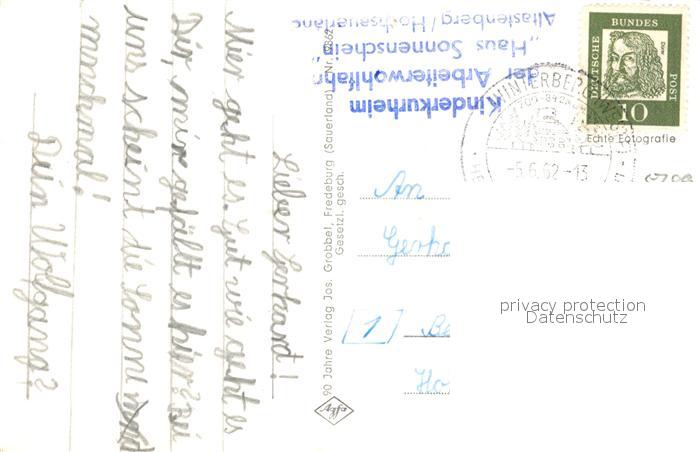 Lieber Gerhard!
Mier geht es gut wie geht es
Dir, mir gefällt es hier? Bei
uns scheint die Sonne
manchmal!
Dein Wolfgang?
Kinderkurheim
der Arbeiterwohlfahr
„Haus Sonnenschein"
Altastenberg/Hochsauerland
90 Jahre Verlag Jos. Grobbel, Fredeburg (Sauerland)
Gesetzl. gesch.
Agfa
DEUTSCHE
BUNDES
POST
Dürer
10
Echte Fotografie
WINTERBERG
-5.6.62-13
An
Gerha
[1] Be
Ho
privacy protection
Datenschutz